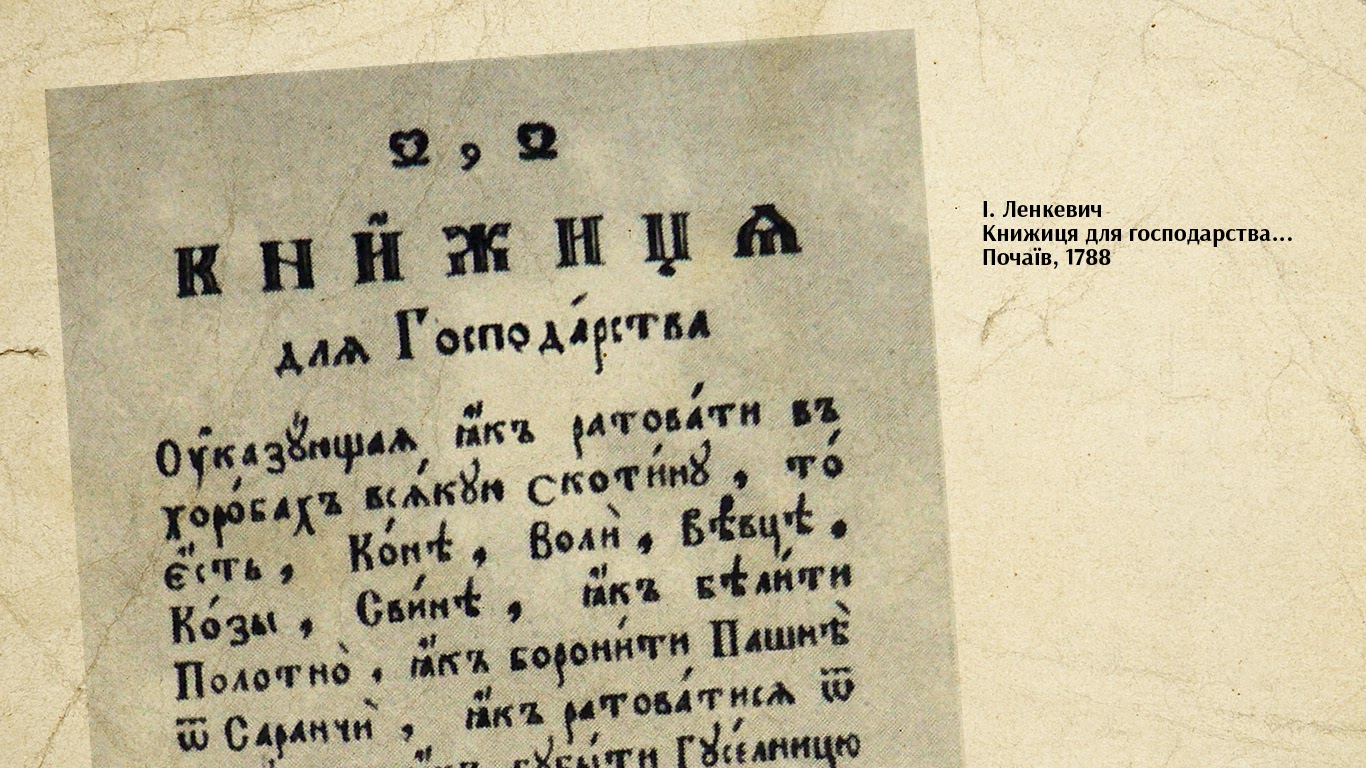 Ѿ , Ѿ
КНИ́ЖИЦѦ
длѧ Господа́рства
Оу҆казꙋ́ющаѧ ꙗ҆́къ ратова́ти въ
хоро́бахъ всѧ́кꙋю Скоти́нꙋ , то́
є҆́сть , Ко́нѣ , Волѝ , Вѣвцѣ̀ ,
Ко́зы , Сви́нѣ , ꙗ҆́къ бѣли́ти
Полотно̀ , ꙗ҆́къ борони́ти Пашнѣ̀
ѿ Саранчѝ , ꙗ҆́къ ратова́тисѧ ѿ
гꙋби́ти Гꙋ́сѣлницю
І. Ленкевич
Книжиця для господарства...
Почаїв, 1788